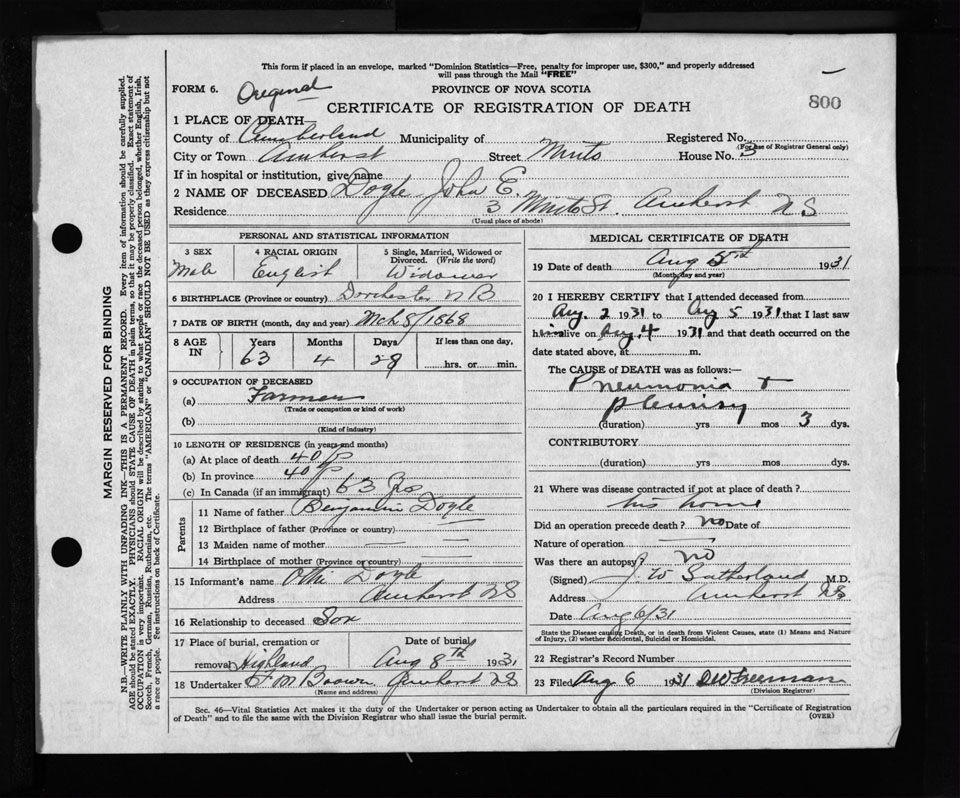 This form if placed in an envelope, marked "Dominion Statistics—Free, penalty for improper use, $300," and properly addressed
will pass through the Mail "FREE"
FORM 6.
Original
PROVINCE OF NOVA SCOTIA
800
CERTIFICATE OF REGISTRATION OF DEATH
1 PLACE OF DEATH—
County of Cumberland Municipality of Registered No.
(For use of Registrar General only)
City or Town Amherst Street Minto House No. 3
If in hospital or institution, give name
2 NAME OF DECEASED Doyle John E.
Residence 3 Minto St. Amherst NS
(Usual place of abode)
PERSONAL AND STATISTICAL INFORMATION
3 SEX 4 RACIAL ORIGIN 5 Single, Married, Widowed or
Divorced. (Write the word)
Male English Widower
6 BIRTHPLACE (Province or country) Dorchester NB
7 DATE OF BIRTH (month, day and year) Mch 8/1868
8 AGE IN Years Months Days If less than one day,
63 4 28 hrs. or min.
9 OCCUPATION OF DECEASED
(a) Farmer
(Trade or occupation or kind of work)
(b)
(Kind of industry)
10 LENGTH OF RESIDENCE (in years and months)
(a) At place of death 40
(b) In province 40
(c) In Canada (if an immigrant) 63
Parents
11 Name of father Benjamin Doyle
12 Birthplace of father (Province or country) —
13 Maiden name of mother — —
14 Birthplace of mother (Province or country) — —
15 Informant's name Doyle
Address Amherst NS
16 Relationship to deceased Son
17 Place of burial, cremation or Date of burial
removal Highland Aug 8th 1931
18 Undertaker F M Brown Amherst NS
(Name and address)
MEDICAL CERTIFICATE OF DEATH
19 Date of death Aug 5th 1931
(Month, day and year)
20 I HEREBY CERTIFY that I attended deceased from
Aug. 2 1931 to Aug 5 1931 that I last saw
him alive on Aug. 4 1931 and that death occurred on the
date stated above, at m.
The CAUSE of DEATH was as follows:—
Pneumonia +
pleurisy
(duration) yrs mos 3 dys.
CONTRIBUTORY
(duration) yrs mos dys.
21 Where was disease contracted if not at place of death?
his home
Did an operation precede death? no Date of
Nature of operation —
Was there an autopsy? no
(Signed) J. W Sutherland M.D.
Address Amherst NS
Date Aug 6/31
State the Disease causing Death, or in death from Violent Causes, state (1) Means and Nature
of Injury, (2) whether Accidental, Suicidal or Homicidal.
22 Registrar's Record Number
23 Filed Aug 6 1931 Freeman
(Division Registrar)
Sec. 46—Vital Statistics Act makes it the duty of the Undertaker or person acting as Undertaker to obtain all the particulars required in the "Certificate of Registration
of Death" and to file the same with the Division Registrar who shall issue the burial permit.
(OVER)
MARGIN RESERVED FOR BINDING
N.B.—WRITE PLAINLY WITH UNFADING INK—THIS IS A PERMANENT RECORD. Every item of information should be carefully supplied.
AGE should be stated EXACTLY. PHYSICIANS should STATE CAUSE OF DEATH in plain terms, so that it may be properly classified. Exact statement of
OCCUPATION is very important. RACIAL ORIGIN will be described by stating to what people or race the deceased person belonged, whether English, Irish,
Scotch, French, German, Russian, Ruthenian, etc. The terms "AMERICAN" or "CANADIAN" SHOULD NOT BE USED as they express citizenship but not
a race or people. See instructions on back of Certificate.